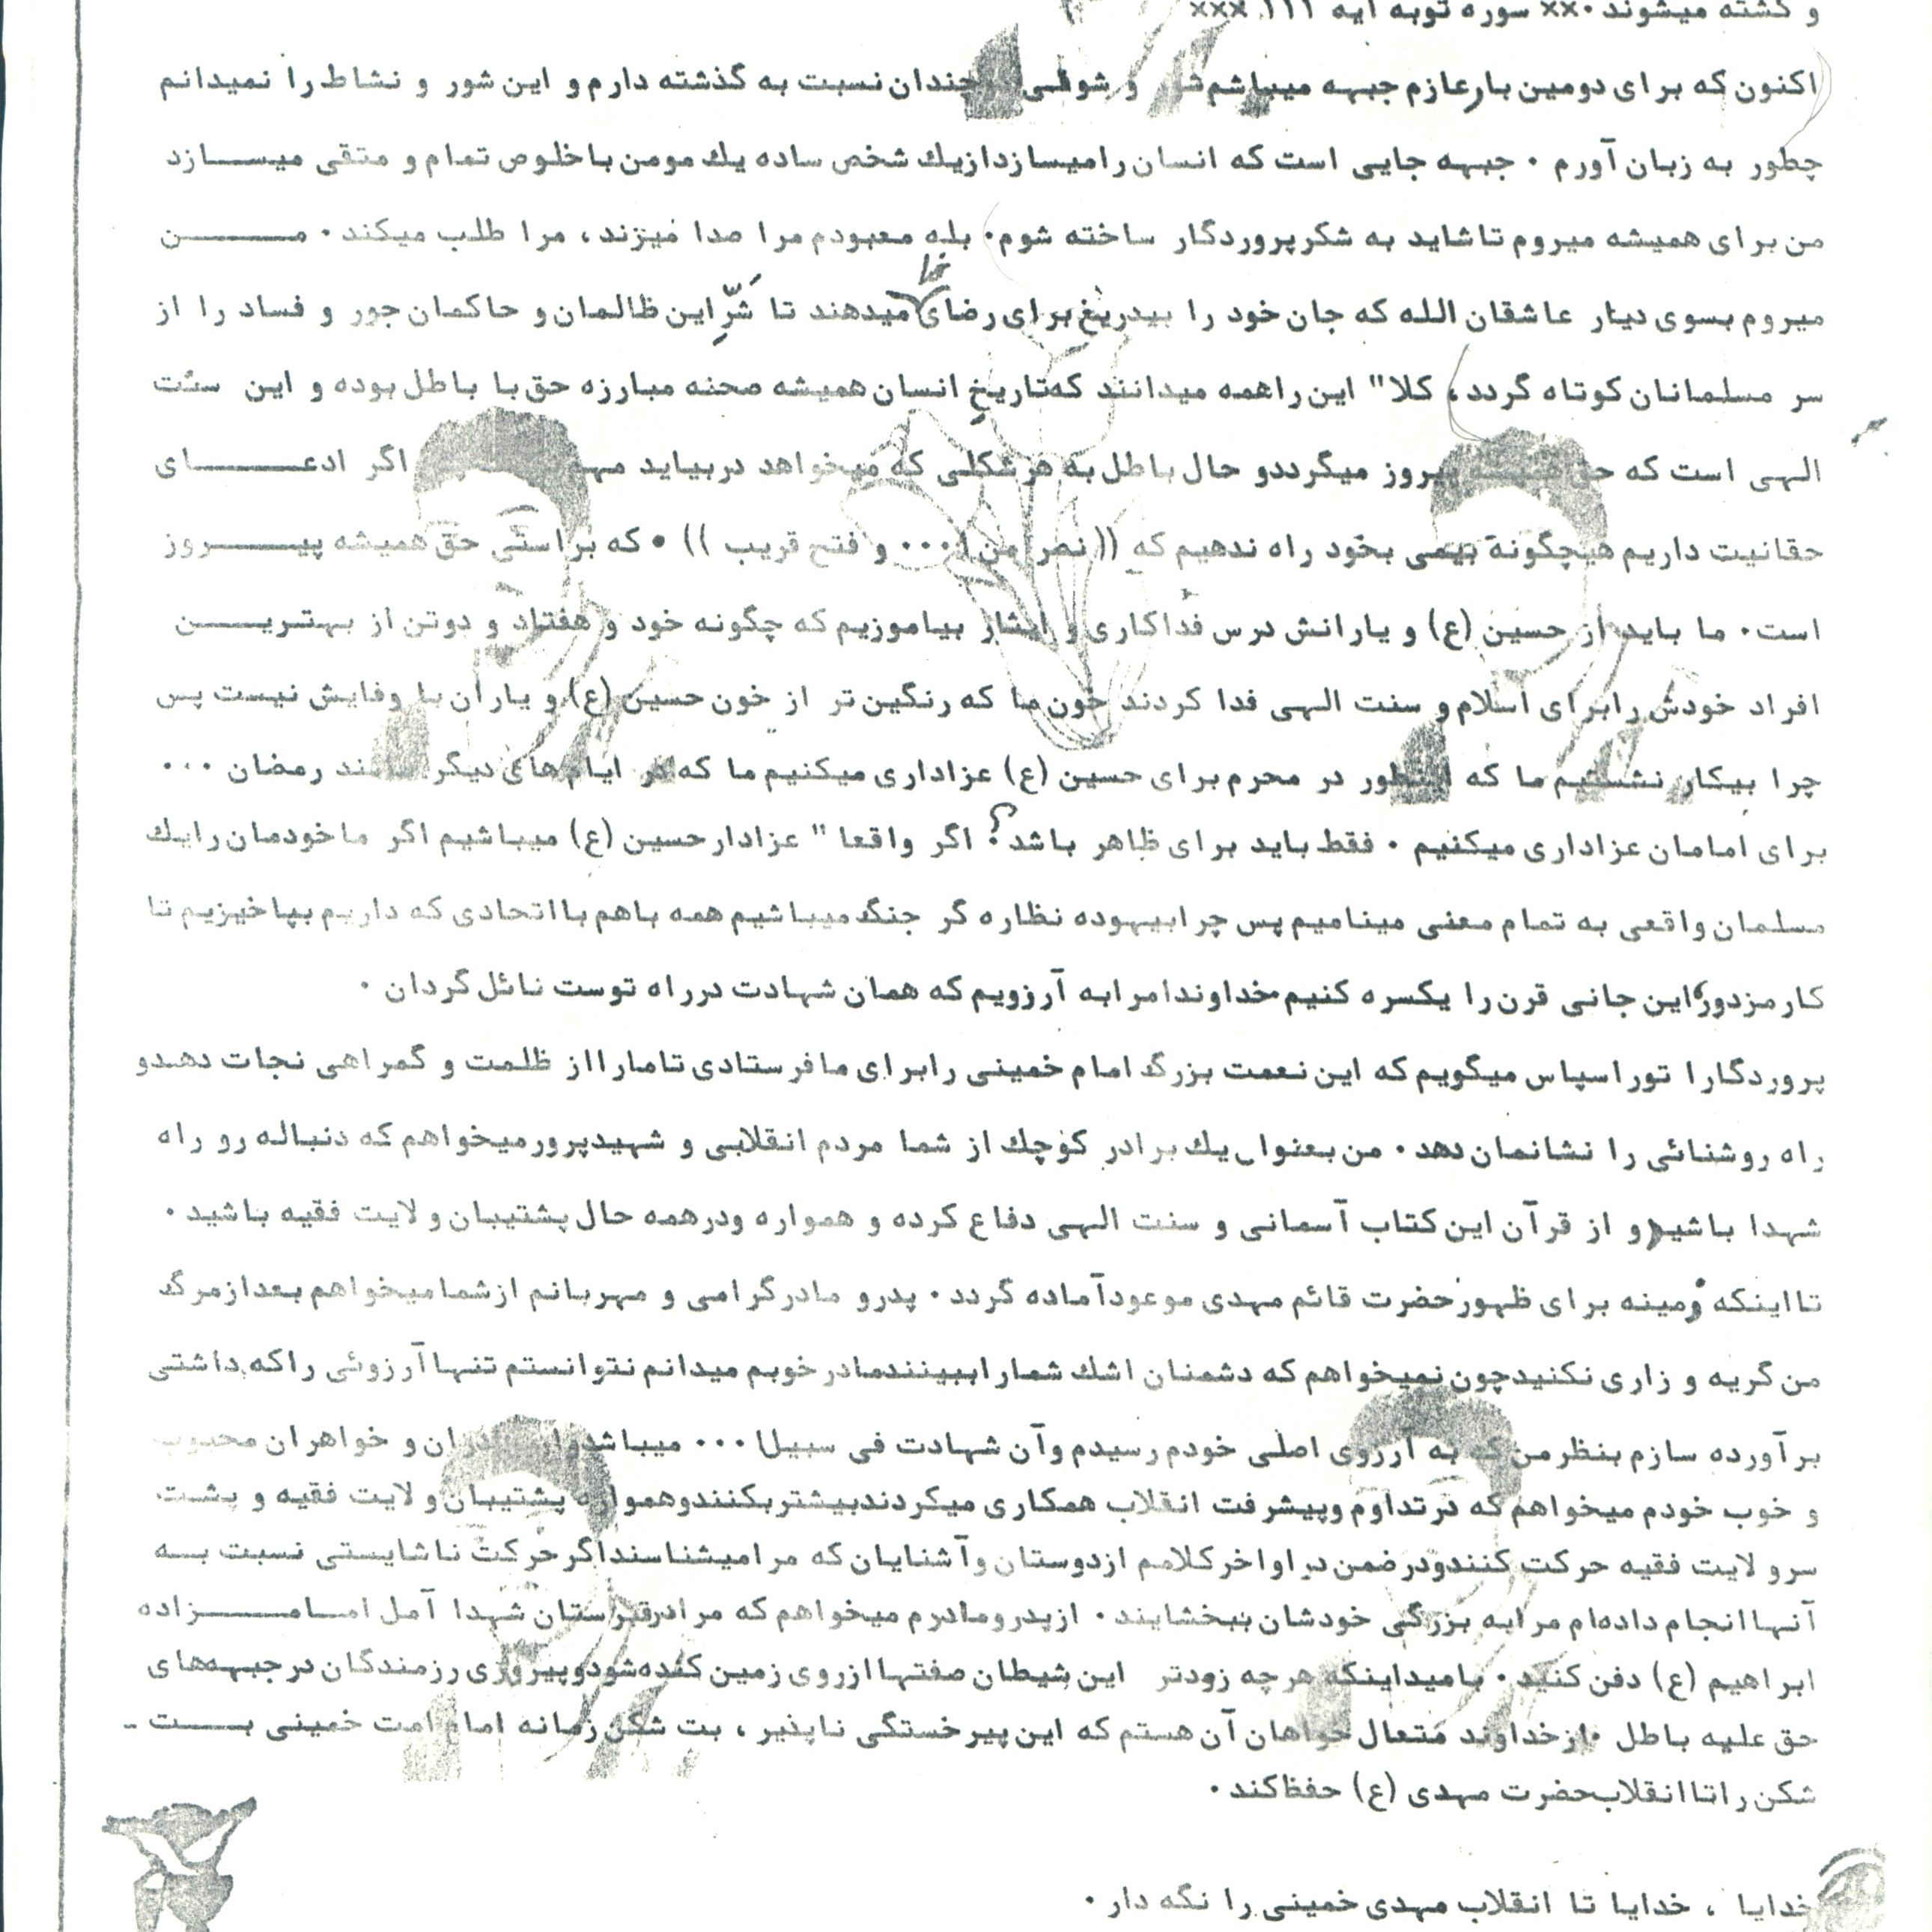 و کشته میشوند ۰×× سوره توبه آیه ۱۱۱ ×××
اکنون که برای دومین بار عازم جبهه میباشم و شوقی چندان نسبت به گذشته دارم و این شور و نشاط را نمیدانم
چطور به زبان آورم ۰ جبهه جایی است که انسان را میسازد از یك شخص ساده یك مومن با خلوص تمام و متقی میسـازد
من برای همیشه میروم تا شاید به شکر پروردگار ساخته شوم۰ بله معبودم مرا صدا میزند، مرا طلب میکند۰ مـن
میروم بسوی دیار عاشقان الله که جان خود را بیدریغ برای رضای خدا میدهند تا شَرِّ این ظالمان و حاکمان جور و فساد را از
سر مسلمانان کوتاه گردد، کلا" این را همه میدانند که تاریخِ انسان همیشه صحنه مبارزه حق با باطل بوده و این سنت
الهی است که حق همیشه پیروز میگردد و حال باطل به هر شکلی که میخواهد در بیاید اگر ادعـای
حقانیت داریم هیچگونه بیمی بخود راه ندهیم که (( نصر من ا۰۰۰ و فتح قریب )) ۰ که براستی حق همیشه پیـروز
است۰ ما باید از حسین (ع) و یارانش درس فداکاری و ایثار بیاموزیم که چگونه خود و هفتاد و دوتن از بهتریـن
افراد خودش را برای اسلام و سنت الهی فدا کردند خون ما که رنگین تر از خون حسین (ع) و یاران با وفایش نیست پس
چرا بیکار نشستیم ما که اینطور در محرم برای حسین (ع) عزاداری میکنیم ما که در ایام های دیگر مانند رمضان ۰۰۰
برای امامان عزاداری میکنیم ۰ فقط باید برای ظاهر باشد؟ اگر واقعا" عزادار حسین (ع) میباشیم اگر ما خودمان را یك
مسلمان واقعی به تمام معنی مینامیم پس چرا بیهوده نظاره گر جنگ میباشیم همه باهم با اتحادی که داریم بپا خیزیم تا
کار مزدور این جانی قرن را یکسره کنیم خداوندا مرا به آرزویم که همان شهادت در راه توست نائل گردان ۰
پروردگارا تو را سپاس میگویم که این نعمت بزرگ امام خمینی را برای ما فرستادی تا ما را از ظلمت و گمراهی نجات دهد و
راه روشنائی را نشانمان دهد۰ من بعنوان یك برادر کوچك از شما مردم انقلابی و شهید پرور میخواهم که دنباله رو راه
شهدا باشید و از قرآن این کتاب آسمانی و سنت الهی دفاع کرده و همواره و در همه حال پشتیبان ولایت فقیه باشید ۰
تا اینکه زمینه برای ظهور حضرت قائم مهدی موعود آماده گردد ۰ پدر و مادر گرامی و مهربانم از شما میخواهم بعد از مرگ
من گریه و زاری نکنید چون نمیخواهم که دشمنان اشك شما را ببینند مادر خوبم میدانم نتوانستم تنها آرزوئی را که داشتی
بر آورده سازم بنظر من که به آرزوی اصلی خودم رسیدم و آن شهادت فی سبیل ا۰۰۰ میباشد و از برادران و خواهران محبوب
و خوب خودم میخواهم که در تداوم و پیشرفت انقلاب همکاری میکردند بیشتر بکنند و همواره پشتیبان ولایت فقیه و پشت
سر ولایت فقیه حرکت کنند و در ضمن در اواخر کلامم از دوستان و آشنایان که مرا میشناسند اگر حرکت ناشایستی نسبت بـه
آنها انجام داده‌ام مرا به بزرگی خودشان ببخشایند ۰ از پدر و مادرم میخواهم که مرا در قبرستان شهدا آمل امـامـزاده
ابراهیم (ع) دفن کنید ۰ بامید اینکه هر چه زودتر این شیطان صفتها از روی زمین کنده شود و پیروزی رزمندگان در جبهه‌های
حق علیه باطل ۰ از خداوند متعال خواهان آن هستم که این پیر خستگی ناپذیر ، بت شکن زمانه امام امت خمینی بـت ـ
شکن را تا انقلاب حضرت مهدی (ع) حفظ کند ۰
خدایا ، خدایا تا انقلاب مهدی خمینی را نگه دار ۰